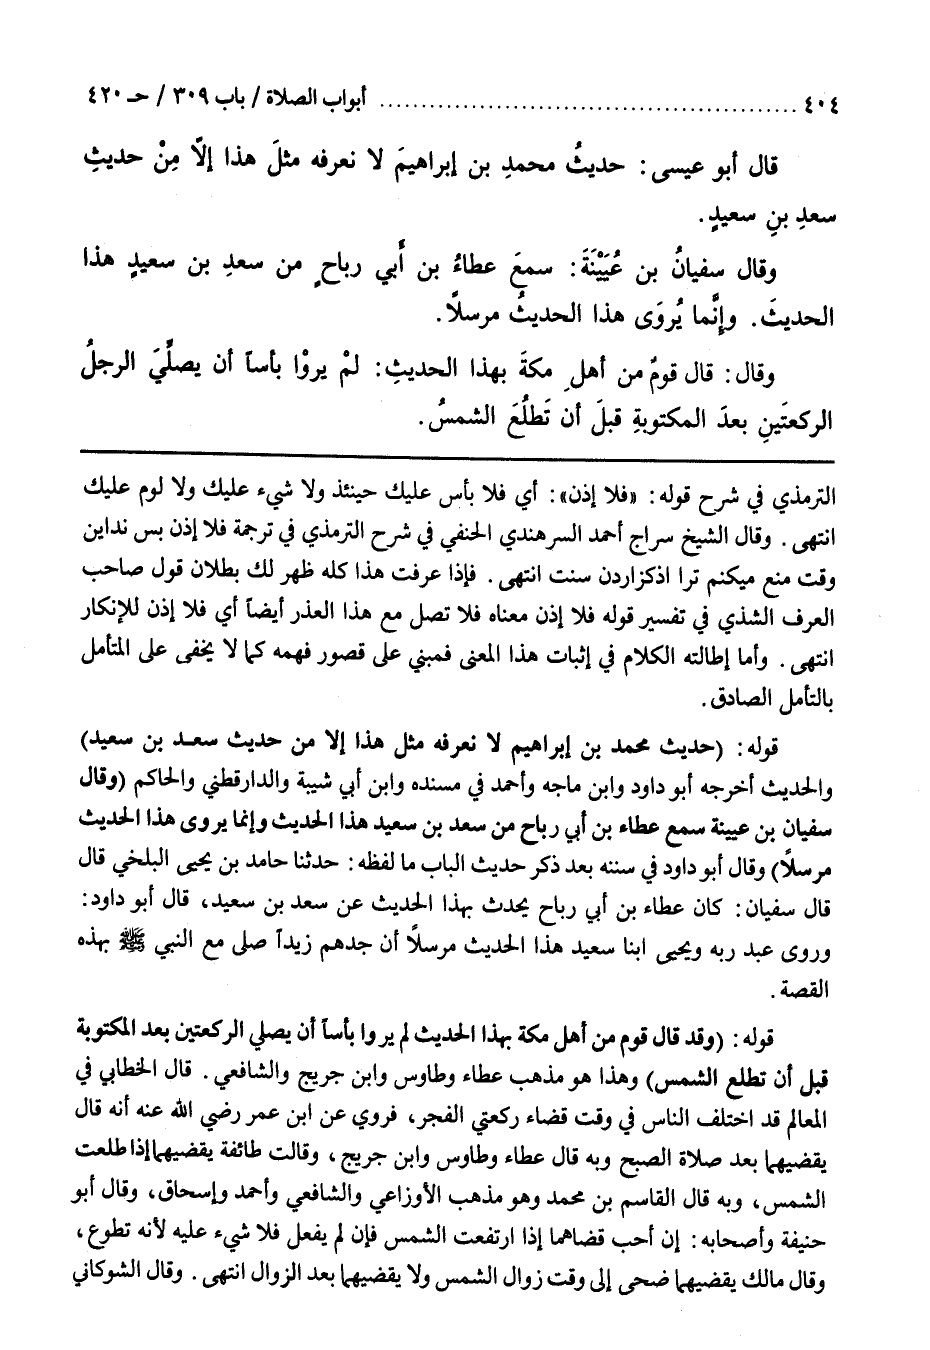 ٤٠٤ ............................................. أبواب الصلاة / باب ٣٠٩ / حـ ٤٢٠
قال أبو عيسى: حديثُ محمدِ بن إبراهيمَ لا نعرفه مثلَ هذا إلّا مِنْ حديثِ
سعدِ بنِ سعيدٍ.
وقال سفيانُ بن عُيَيْنَةَ: سمعَ عطاءُ بن أَبي رباحٍ من سعدِ بن سعيدٍ هذا
الحديثَ. وإنَّما يُروَى هذا الحديثُ مرسلًا.
وقال: قال قومٌ من أهلِ مكةَ بهذا الحديثِ: لمْ يروْا بأساً أن يصلِّيَ الرجلُ
الركعتَينِ بعدَ المكتوبةِ قبلَ أن تَطلُعَ الشمسُ.
الترمذي في شرح قوله: «فلا إذن»: أي فلا بأس عليك حينئذ ولا شيء عليك ولا لوم عليك
انتهى. وقال الشيخ سراج أحمد السرهندي الحنفي في شرح الترمذي في ترجمة فلا إذن بس نداين
وقت منع ميكنم ترا اذكزاردن سنت انتهى. فإذا عرفت هذا كله ظهر لك بطلان قول صاحب
العرف الشذي في تفسير قوله فلا إذن معناه فلا تصل مع هذا العذر أيضاً أي فلا إذن للإنكار
انتهى. وأما إطالته الكلام في إثبات هذا المعنى فمبني على قصور فهمه كما لا يخفى على المتأمل
بالتأمل الصادق.
قوله: (حديث محمد بن إبراهيم لا نعرفه مثل هذا إلا من حديث سعد بن سعيد)
والحديث أخرجه أبو داود وابن ماجه وأحمد في مسنده وابن أبي شيبة والدارقطني والحاكم (وقال
سفيان بن عيينة سمع عطاء بن أبي رباح من سعد بن سعيد هذا الحديث وإنما يروى هذا الحديث
مرسلًا) وقال أبو داود في سننه بعد ذكر حديث الباب ما لفظه: حدثنا حامد بن يحيى البلخي قال
قال سفيان: كان عطاء بن أبي رباح يحدث بهذا الحديث عن سعد بن سعيد، قال أبو داود:
وروى عبد ربه ويحيى ابنا سعيد هذا الحديث مرسلًا أن جدهم زيداً صلى مع النبي ﷺ بهذه
القصة.
قوله: (وقد قال قوم من أهل مكة بهذا الحديث لم يروا بأساً أن يصلي الركعتين بعد المكتوبة
قبل أن تطلع الشمس) وهذا هو مذهب عطاء وطاوس وابن جريج والشافعي. قال الخطابي في
المعالم قد اختلف الناس في وقت قضاء ركعتي الفجر، فروي عن ابن عمر رضي الله عنه أنه قال
يقضيهما بعد صلاة الصبح وبه قال عطاء وطاوس وابن جريج، وقالت طائفة يقضيهما إذا طلعت
الشمس، وبه قال القاسم بن محمد وهو مذهب الأوزاعي والشافعي وأحمد وإسحاق، وقال أبو
حنيفة وأصحابه: إن أحب قضاهما إذا ارتفعت الشمس فإن لم يفعل فلا شيء عليه لأنه تطوع،
وقال مالك يقضيهما ضحى إلى وقت زوال الشمس ولا يقضيهما بعد الزوال انتهى. وقال الشوكاني